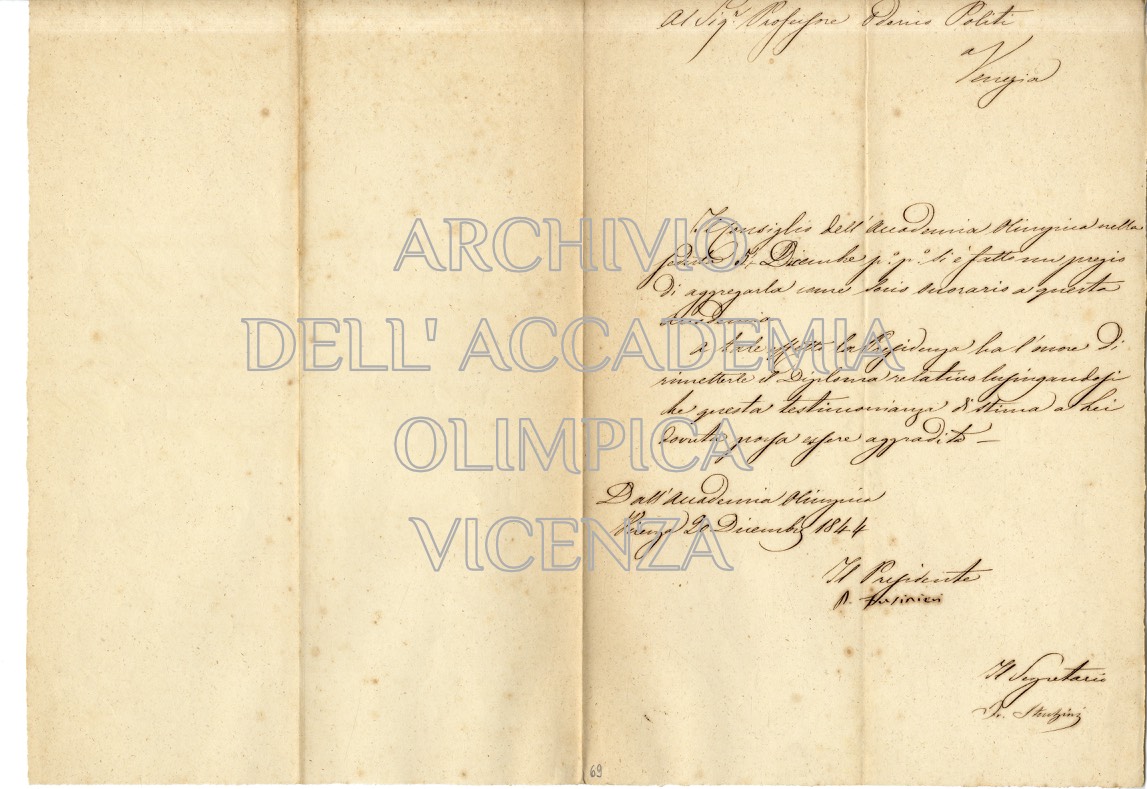 Al Sigr. Professore Odorico Politi
a
Venezia
Il Consiglio dell'Accademia Olimpica nella
seduta Dicembre p.o p.o si è fatto un pregio
di aggregarla come Socio onorario a questa
Accademia
A tale effetto la Presidenza ha l'onore di
rimetterle il Diploma relativo lusingandosi
che questa testimonianza di stima a Lei
dovuta possa essere aggradita –
Dall'Accademia Olimpica
Vicenza 20 Dicembre 1844
Il Presidente
A. Fusinieri
Il Segretario
69
ARCHIVIO
DELL' ACCADEMIA
OLIMPICA
VICENZA